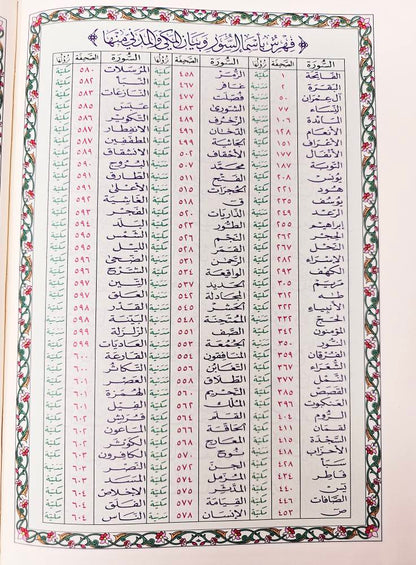 فهرس بأسماء السور وبيان المكي والمدني منها
السورة الصحيفة نزولها
الفاتحة ١ مكية
البقرة ٢ مدنية
آل عمران ٥٠ مدنية
النساء ٧٧ مدنية
المائدة ١٠٦ مدنية
الأنعام ١٢٨ مكية
الأعراف ١٥١ مكية
الأنفال ١٧٧ مدنية
التوبة ١٨٧ مدنية
يونس ٢٠٨ مكية
هود ٢٢١ مكية
يوسف ٢٣٥ مكية
الرعد ٢٤٩ مدنية
إبراهيم ٢٥٥ مكية
الحجر ٢٦٢ مكية
النحل ٢٦٧ مكية
الإسراء ٢٨٢ مكية
الكهف ٢٩٣ مكية
مريم ٣٠٥ مكية
طه ٣١٢ مكية
الأنبياء ٣٢٢ مكية
الحج ٣٣٢ مدنية
المؤمنون ٣٤٢ مكية
النور ٣٥٠ مدنية
الفرقان ٣٥٩ مكية
الشعراء ٣٦٧ مكية
النمل ٣٧٧ مكية
القصص ٣٨٥ مكية
العنكبوت ٣٩٦ مكية
الروم ٤٠٤ مكية
لقمان ٤١١ مكية
السجدة ٤١٥ مكية
الأحزاب ٤١٨ مدنية
سبأ ٤٢٨ مكية
فاطر ٤٣٤ مكية
يس ٤٤٠ مكية
الصافات ٤٤٦ مكية
ص ٤٥٣ مكية
السورة الصحيفة نزولها
الزمر ٤٥٨ مكية
غافر ٤٦٧ مكية
فصلت ٤٧٧ مكية
الشورى ٤٨٣ مكية
الزخرف ٤٨٩ مكية
الدخان ٤٩٦ مكية
الجاثية ٤٩٩ مكية
الأحقاف ٥٠٢ مكية
محمد ٥٠٧ مدنية
الفتح ٥١١ مدنية
الحجرات ٥١٥ مدنية
ق ٥١٨ مكية
الذاريات ٥٢٠ مكية
الطور ٥٢٣ مكية
النجم ٥٢٦ مكية
القمر ٥٢٨ مكية
الرحمن ٥٣١ مدنية
الواقعة ٥٣٤ مكية
الحديد ٥٣٧ مدنية
المجادلة ٥٤٢ مدنية
الحشر ٥٤٥ مدنية
الممتحنة ٥٤٩ مدنية
الصف ٥٥١ مدنية
الجمعة ٥٥٣ مدنية
المنافقون ٥٥٤ مدنية
التغابن ٥٥٦ مدنية
الطلاق ٥٥٨ مدنية
التحريم ٥٦٠ مدنية
الملك ٥٦٢ مكية
القلم ٥٦٤ مكية
الحاقة ٥٦٦ مكية
المعارج ٥٦٨ مكية
نوح ٥٧٠ مكية
الجن ٥٧٢ مكية
المزمل ٥٧٤ مكية
المدثر ٥٧٥ مكية
القيامة ٥٧٧ مكية
الإنسان ٥٧٨ مدنية
السورة الصحيفة نزولها
المرسلات ٥٨٠ مكية
النبأ ٥٨٢ مكية
النازعات ٥٨٣ مكية
عبس ٥٨٥ مكية
التكوير ٥٨٦ مكية
الانفطار ٥٨٧ مكية
المطففين ٥٨٧ مكية
الانشقاق ٥٨٩ مكية
البروج ٥٩٠ مكية
الطارق ٥٩١ مكية
الأعلى ٥٩١ مكية
الغاشية ٥٩٢ مكية
الفجر ٥٩٣ مكية
البلد ٥٩٤ مكية
الشمس ٥٩٥ مكية
الليل ٥٩٥ مكية
الضحى ٥٩٦ مكية
الشرح ٥٩٦ مكية
التين ٥٩٧ مكية
العلق ٥٩٧ مكية
القدر ٥٩٨ مكية
البينة ٥٩٨ مدنية
الزلزلة ٥٩٩ مدنية
العاديات ٥٩٩ مكية
القارعة ٦٠٠ مكية
التكاثر ٦٠٠ مكية
العصر ٦٠١ مكية
الهمزة ٦٠١ مكية
الفيل ٦٠١ مكية
قريش ٦٠٢ مكية
الماعون ٦٠٢ مكية
الكوثر ٦٠٢ مكية
الكافرون ٦٠٣ مكية
النصر ٦٠٣ مدنية
المسد ٦٠٣ مكية
الإخلاص ٦٠٤ مكية
الفلق ٦٠٤ مكية
الناس ٦٠٤ مكية